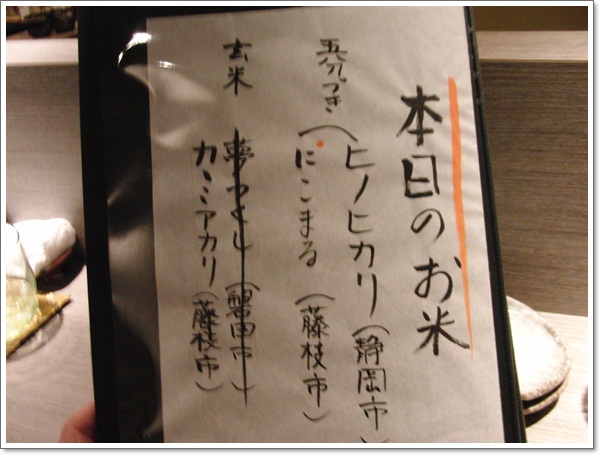 本日のお米
五分づき
ヒノヒカリ(静岡市)
にこまる(藤枝市)
玄米
夢つくし(磐田市)
カミアカリ(藤枝市)